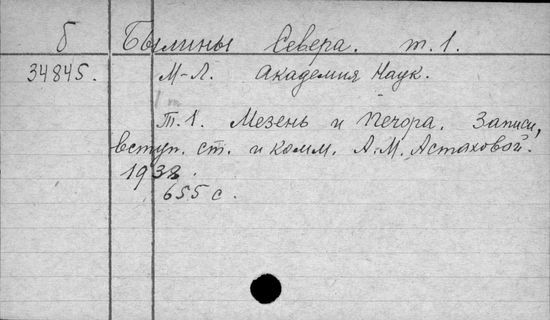 б Былины Севера. т.1.
34845. М-Л. Академия Наук.
Т.1. Мезень и Печора. Записи,
вступ. ст. и комм. А.М. Астаховой.
1938.
655 с.